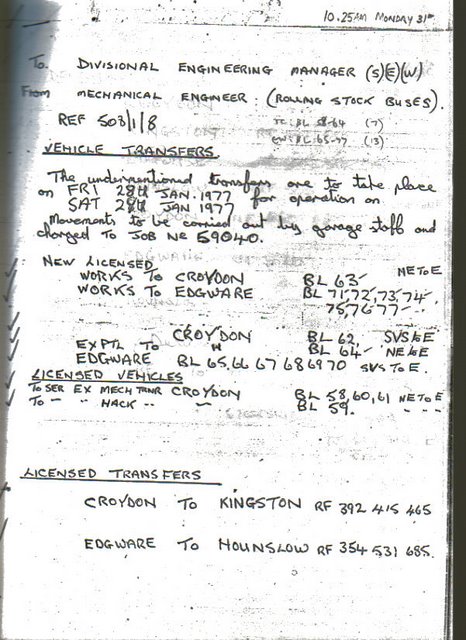 10.25AM MONDAY 31st
To. DIVISIONAL ENGINEERING MANAGER (S)(E)(W)
From MECHANICAL ENGINEER: (ROLLING STOCK BUSES).
REF 503/1/8
TC: BL 58-64 (7)
EW: BL 65-77 (13)
VEHICLE TRANSFERS
The undermentioned transfers are to take place
on FRI 28th JAN. 1977 for operation on
SAT 29th JAN 1977
Movements to be carried out by garage staff and
charged TO JOB No 59040.
NEW LICENSED
WORKS TO CROYDON BL 63 NE to E
WORKS TO EDGWARE BL 71,72,73,74
75,76,77
CROYDON BL 62 SVS to E
EXPTL TO " BL 64 NE to E
EDGWARE BL 65.66 67 68 69 70 SVS TO E.
LICENSED VEHICLES
TO SER EX MECH TRNR CROYDON BL 58,60,61 NE TO E
TO - " - HACK -- " BL 59. - - -
LICENSED TRANSFERS
CROYDON TO KINGSTON RF 392 415 465
EDGWARE TO HOUNSLOW RF 354 531 685.